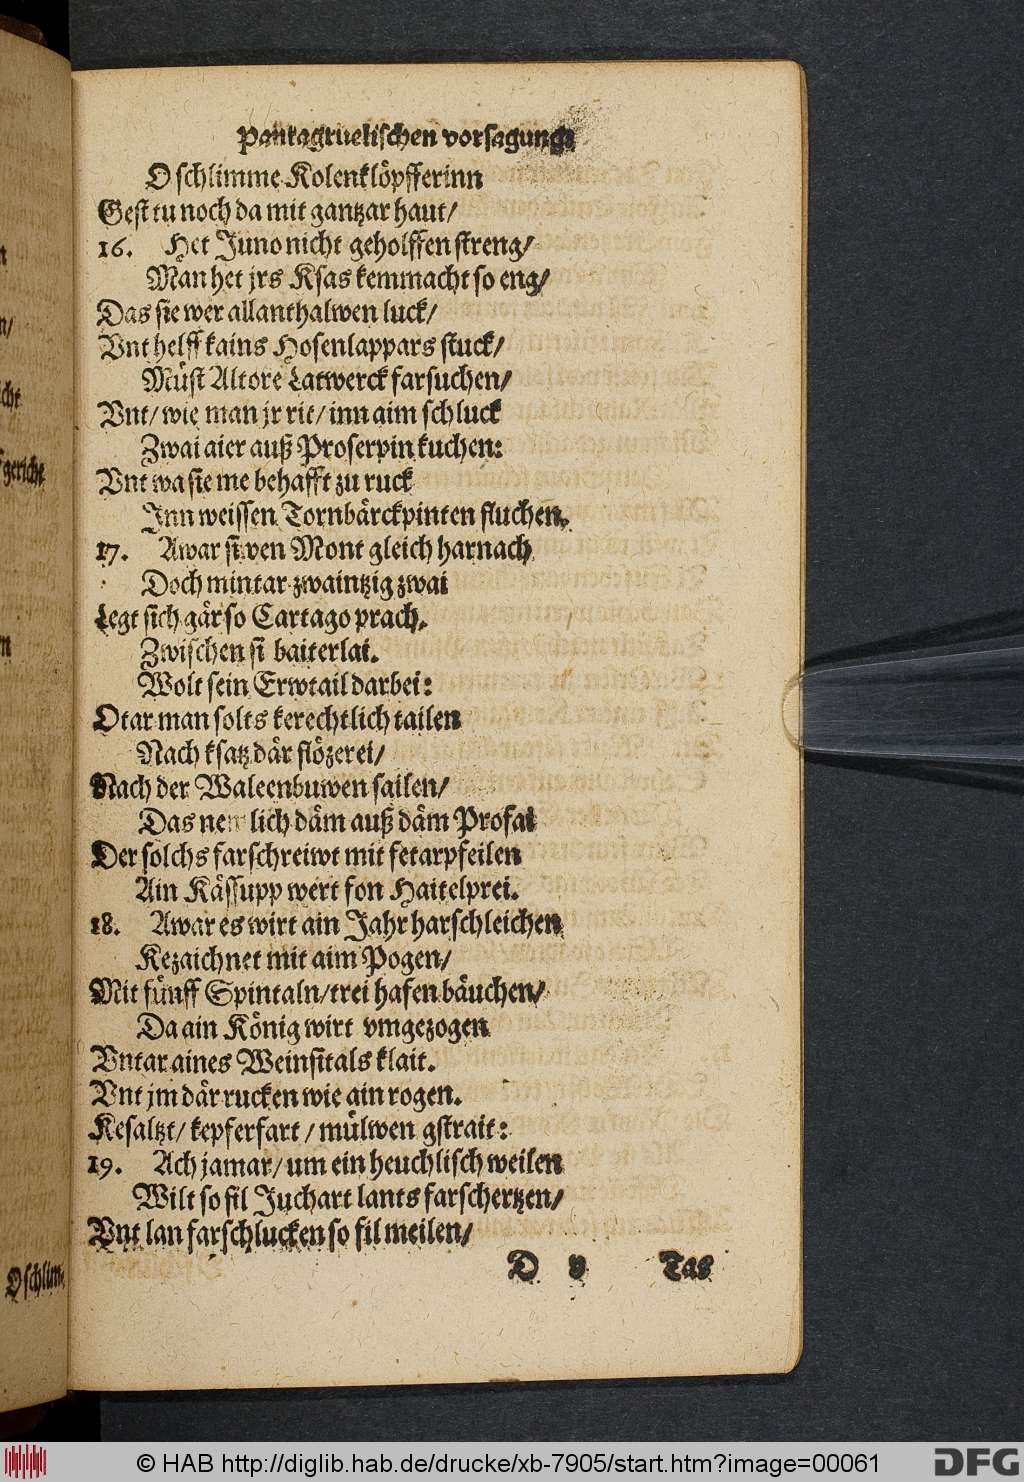 Pantagruelischen vorsagung:
O schlimme Kolenklöpfferinn
Gest tu noch da mit gantzar haut/
16. Het Juno nicht geholffen streng/
Man het jrs Ksas kemmacht so eng/
Das sie wer allanthalwen luck/
Vnt helff kains Hosenlappars stuck/
Müst Altore Latwerck farsuchen/
Vnt/ wie man jr rit/ inn aim schluck
Zwai aier auß Proserpin kuchen:
Vnt wa sie me behafft zu ruck
Jnn weissen Tornbärckpinten fluchen.
17. Awar siwen Mont gleich harnach
Doch mintar zwaintzig zwai
Legt sich gär so Cartago prach.
Zwischen si baiterlai.
Wolt sein Erwtail darbei:
Otar man solts kerechtlich tailen
Nach ksatz där flözerei/
Nach der Waleenbuwen sailen/
Das nemlich däm auß däm Profai
Der solchs farschreiwt mit fetarpfeilen
Ain Kässupp wert fon Haitelprei.
18. Awar es wirt ain Jahr harschleichen
Kezaichnet mit aim Pogen/
Mit fünff Spintaln/ trei hafen bäuchen/
Da ain König wirt vmgezogen
Vntar aines Weinsitals klait.
Vnt jm där rucken wie ain rogen.
Kesaltzt/ kepferfart/ mülwen gstrait:
19. Ach jamar/ um ein heuchlisch weilen
Wilt so fil Juchart lants farschertzen/
Vnt lan farschlucken so fil meilen/
D v Tas
gericht
O schlim-
© HAB http://diglib.hab.de/drucke/xb-7905/start.htm?image=00061
DFG